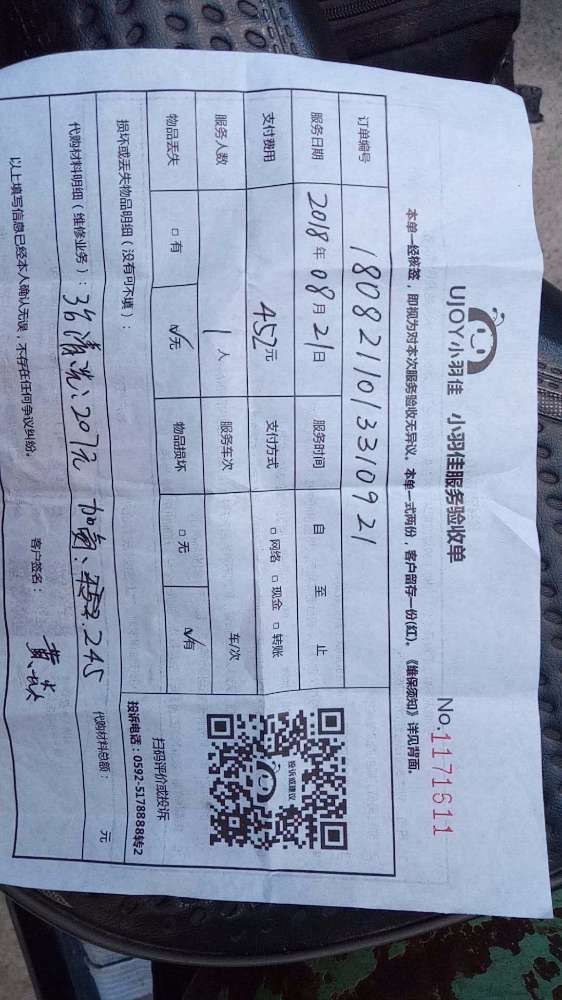 UJOY小羽佳 小羽佳服务验收单
No:1171611
本单一经核签，即视为对本次服务验收无异议。本单一式两份，客户留存一份(红)。《维保须知》详见背面。
订单编号 1808211013310921
服务日期 2018年08月21日 服务时间 自 至 止
支付费用 452元 支付方式 □网络 □现金 □转账
服务人数 1人 服务车次 车/次
物品丢失 □有 ☑无 物品损坏 □无 ☑有
损坏或丢失物品明细（没有可不填）：
代购材料明细（维修业务）： 清洗：207元 加 245 代购材料总额： 元
以上填写信息已经本人确认无误，不存在任何争议纠纷。 客户签名： 黄
投诉或建议
扫码评价或投诉
投诉电话：0592-5178888转2